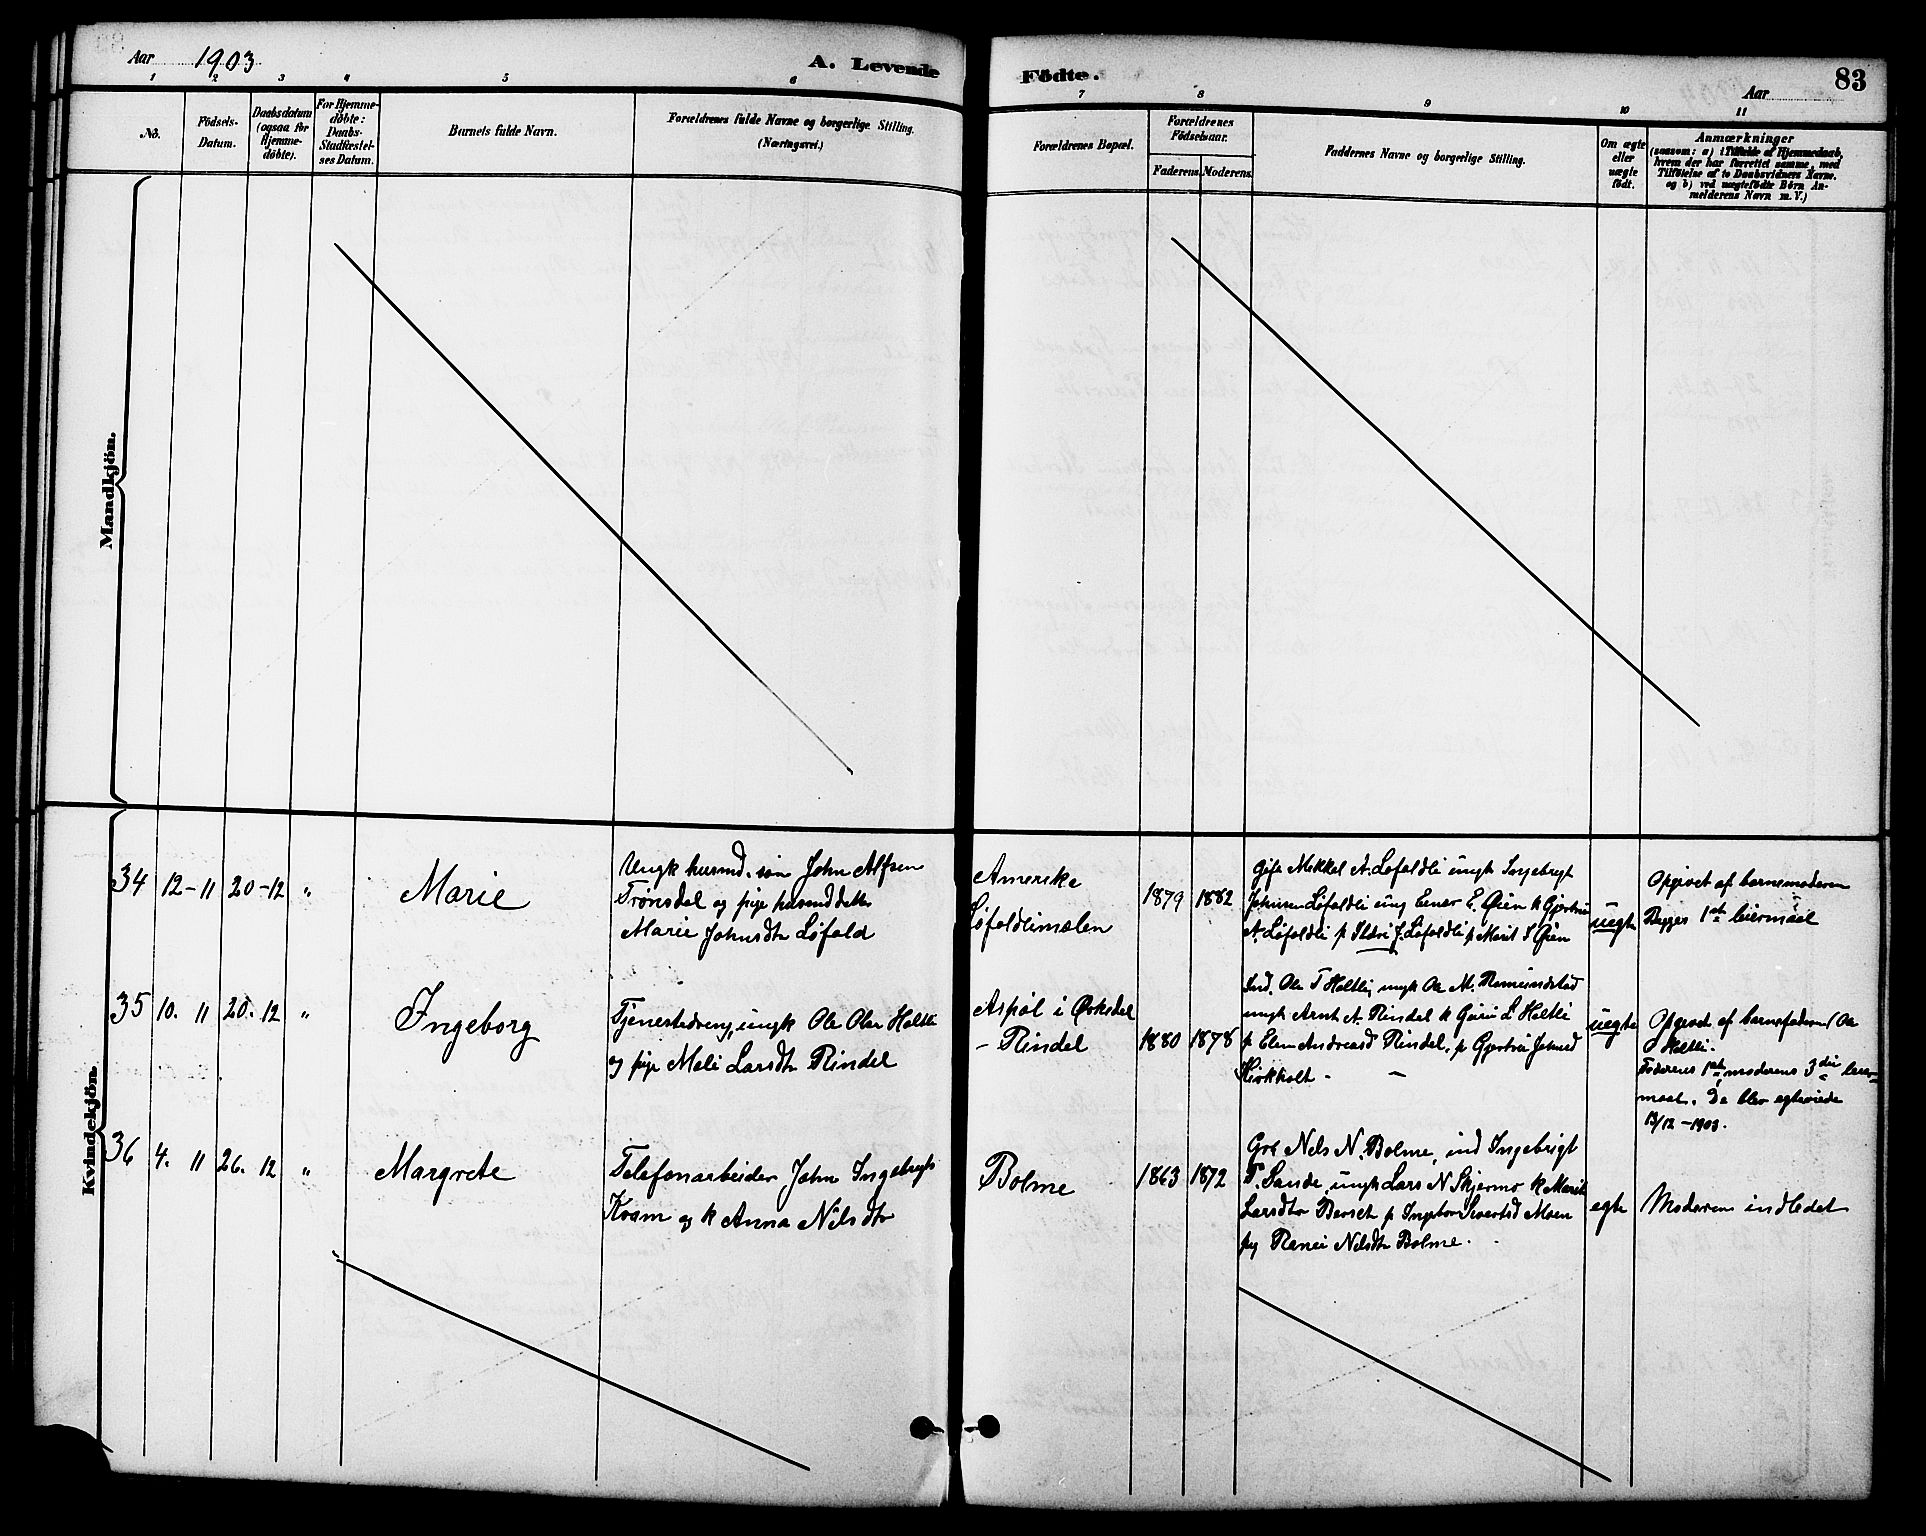 Aar 1903
A. Levende
Födte.
83
Aar
1 2 3 4 5 6
7 8 9 10 11
No.
Födsels-
Datum.
Daabsdatum
(ogsaa for
Hjemme-
döbte).
For Hjemme-
döbte:
Daabs-
Stadfæstel-
ses Datum.
Barnets fulde Navn.
Forældrenes fulde Navne og borgerlige Stilling.
(Næringsvei.)
Forældrenes Bopæl.
Forældrenes
Födselsaar.
Faderens Moderens
Faddernes Navne og borgerlige Stilling.
Om ægte
eller
uægte
födt.
Anmærkninger
(saasom: a) i Tilfælde af Hjemmedaab,
hvem der har forrettet samme, med
Tilföielse af to Daabsvidners Navne.
og b) ved uægtefödte Börn An-
melderens Navn m. V.)
Mandkjön.
Kvindekjön.
34 12-11 20-12 "
Marie
Ungk husmd. søn John Alfsen
Trønsdal og pige husmd datter
Marie Johnsdtr Løfald
Amerika
Løfaldlimælen
1879 1882
Gift Mikkel A. Løfaldli ungk Ingebrigt
Johnsen Løfaldli ung Einar E. Øien k Gjertrud
A. Løfaldli p Ildri J. Løfaldli p Marit I Øien
uegte
Opgivet af barnemoderen
Begges 1ste leiermaal
35 10. 11 20. 12 "
Ingeborg
Tjenestedreng, ungk Ole Olsen Holtli
og pige Mali Larsdtr Rindal
Aspøl i Orkedal
- Rindal
1880 1878
Ind. Ole T Holtli, ungk Ole M.
ungk Arnt A. Rindal k Guru L Holtli
p Elen Andreasd Rindal, p Gjertru Johnsd
Kirkholt -
uegte
Opgivet af barnefaderen Ole
Holtli.
Faderens 1ste moderens 3die leier-
maal. De blev egteviede
13/12 -1903.
36 4. 11 26. 12 "
Margrete
Telefonarbeider John Ingebrigts
Kvam og k Anna Nilsdtr
Bolme
1863 1872
Grb Nels N. Bolme, ind Ingebrigt
T. Sande, ungk Lars N Skjermo k Marit
Larsdtr Berset p Ingebor Sivertsd Moen
pig Ranei Nilsdtr Bolme.
egte
Moderen indledet